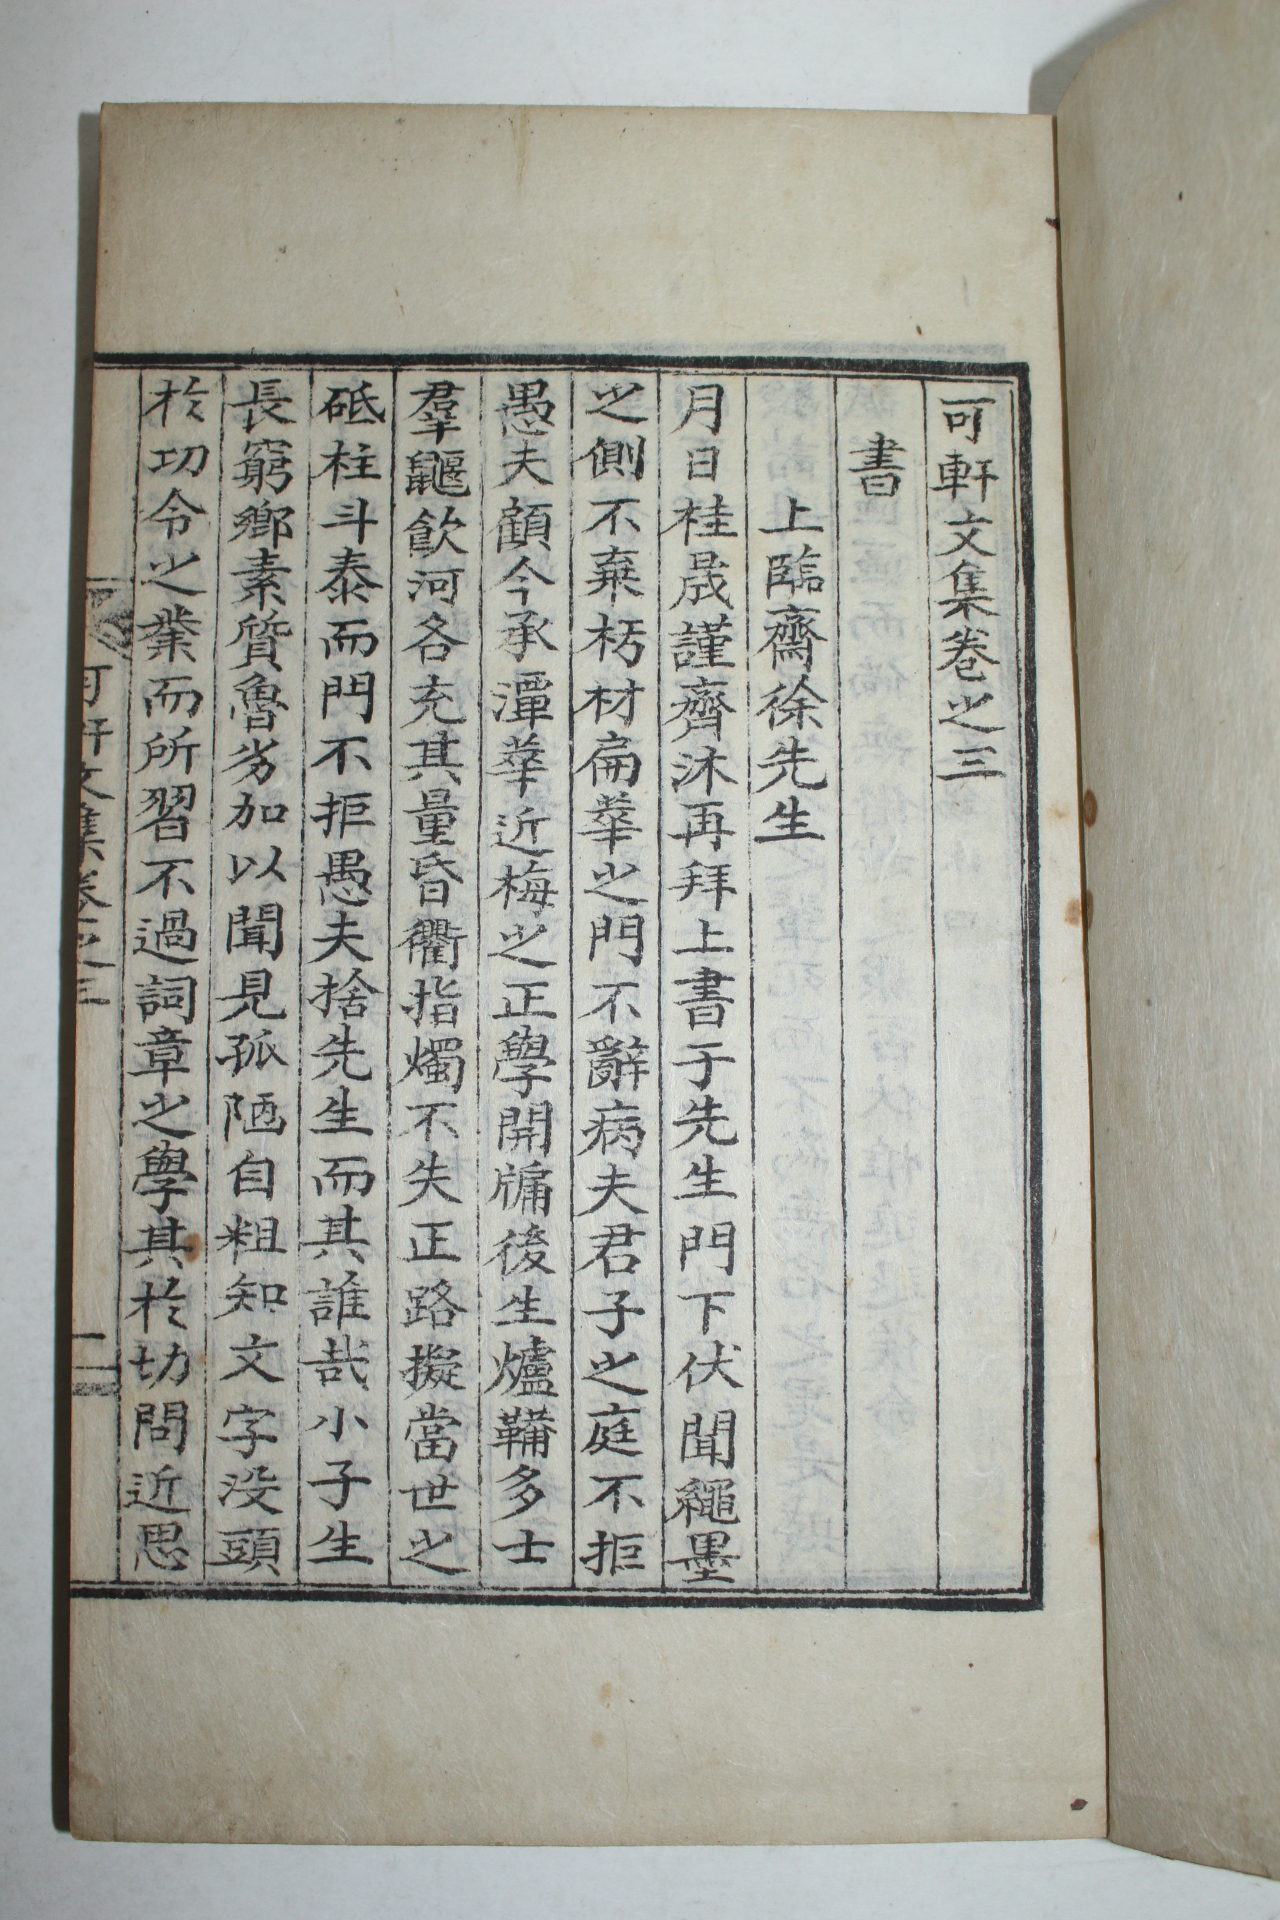 可軒文集卷之三
書
上臨齋徐先生
月日桂晟謹齊沐再拜上書于先生門下伏聞繩墨
之側不棄朽材扁華之門不辭病夫君子之庭不拒
愚夫顧今承潭華近梅之正學開牖後生爐鞴多士
羣鼴飮河各充其量昏衢指燭不失正路擬當世之
砥柱斗泰而門不拒愚夫捨先生而其誰哉小子生
長窮鄕素質魯劣加以聞見孤陋自粗知文字沒頭
於功令之業而所習不過詞章之學其於切問近思
可軒文集卷之三
一